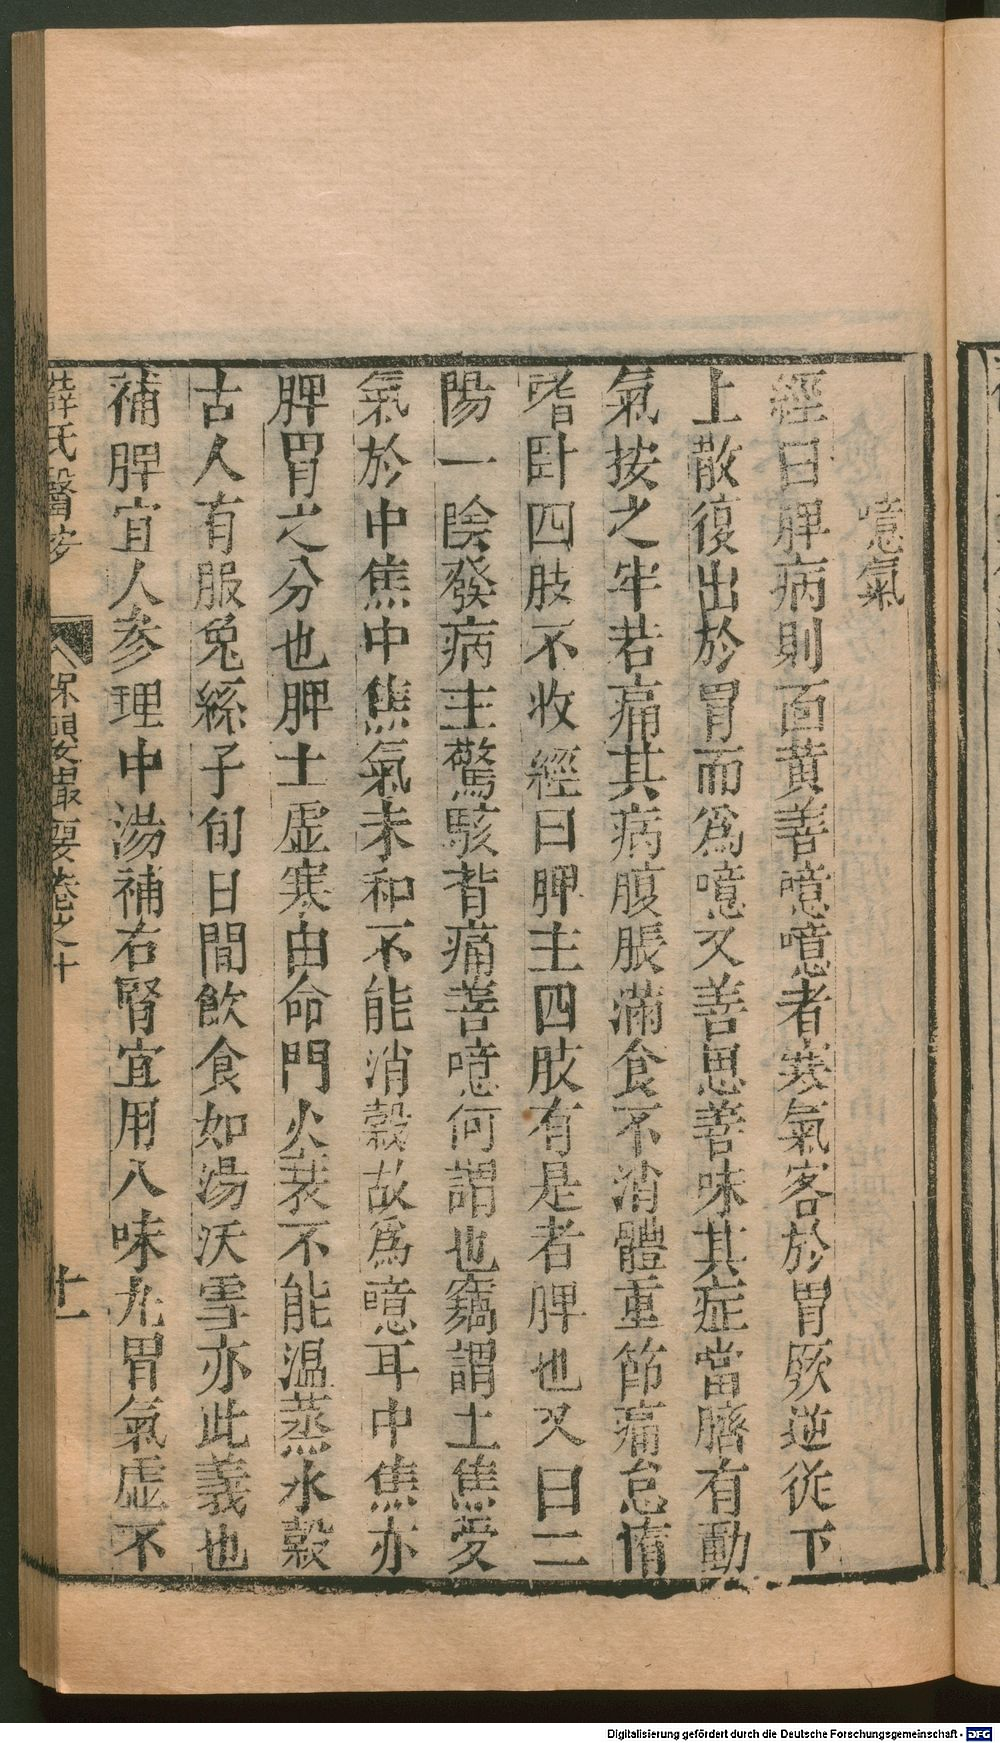 噫氣
經曰脾病則面黄善噫噫者寒氣客於胃厥逆從下
上散復出於胃而爲噫又善思善味其症當臍有動
氣按之牢若痛其病腹脹滿食不消體重節痛怠惰
嗜卧四肢不收經曰脾主四肢有是者脾也又曰二
陽一陰發病主驚駭背痛善噫何謂也竊謂上焦受
氣於中焦中焦氣未和不能消穀故爲噫耳中焦亦
脾胃之分也脾土虛寒由命門火衰不能温蒸水穀
古人有服兔絲子旬日間飲食如湯沃雪亦此義也
補脾宜人參理中湯補右腎宜用八味丸胃氣虛不
薛氏醫按 保嬰撮要卷之十 十一
Digitalisierung gefördert durch die Deutsche Forschungsgemeinschaft - DFG